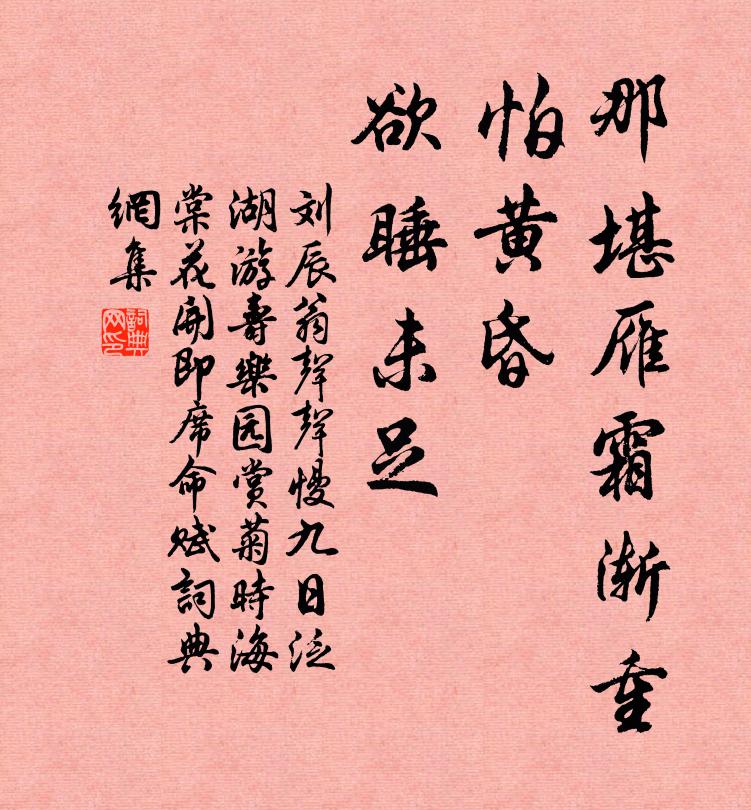 那堪雁霜渐重
怕黄昏
欲睡未足
刘辰翁聲聲慢九日泛
湖游壽樂园赏菊時海
棠花開即席命赋詞典
網集
詞典
网印